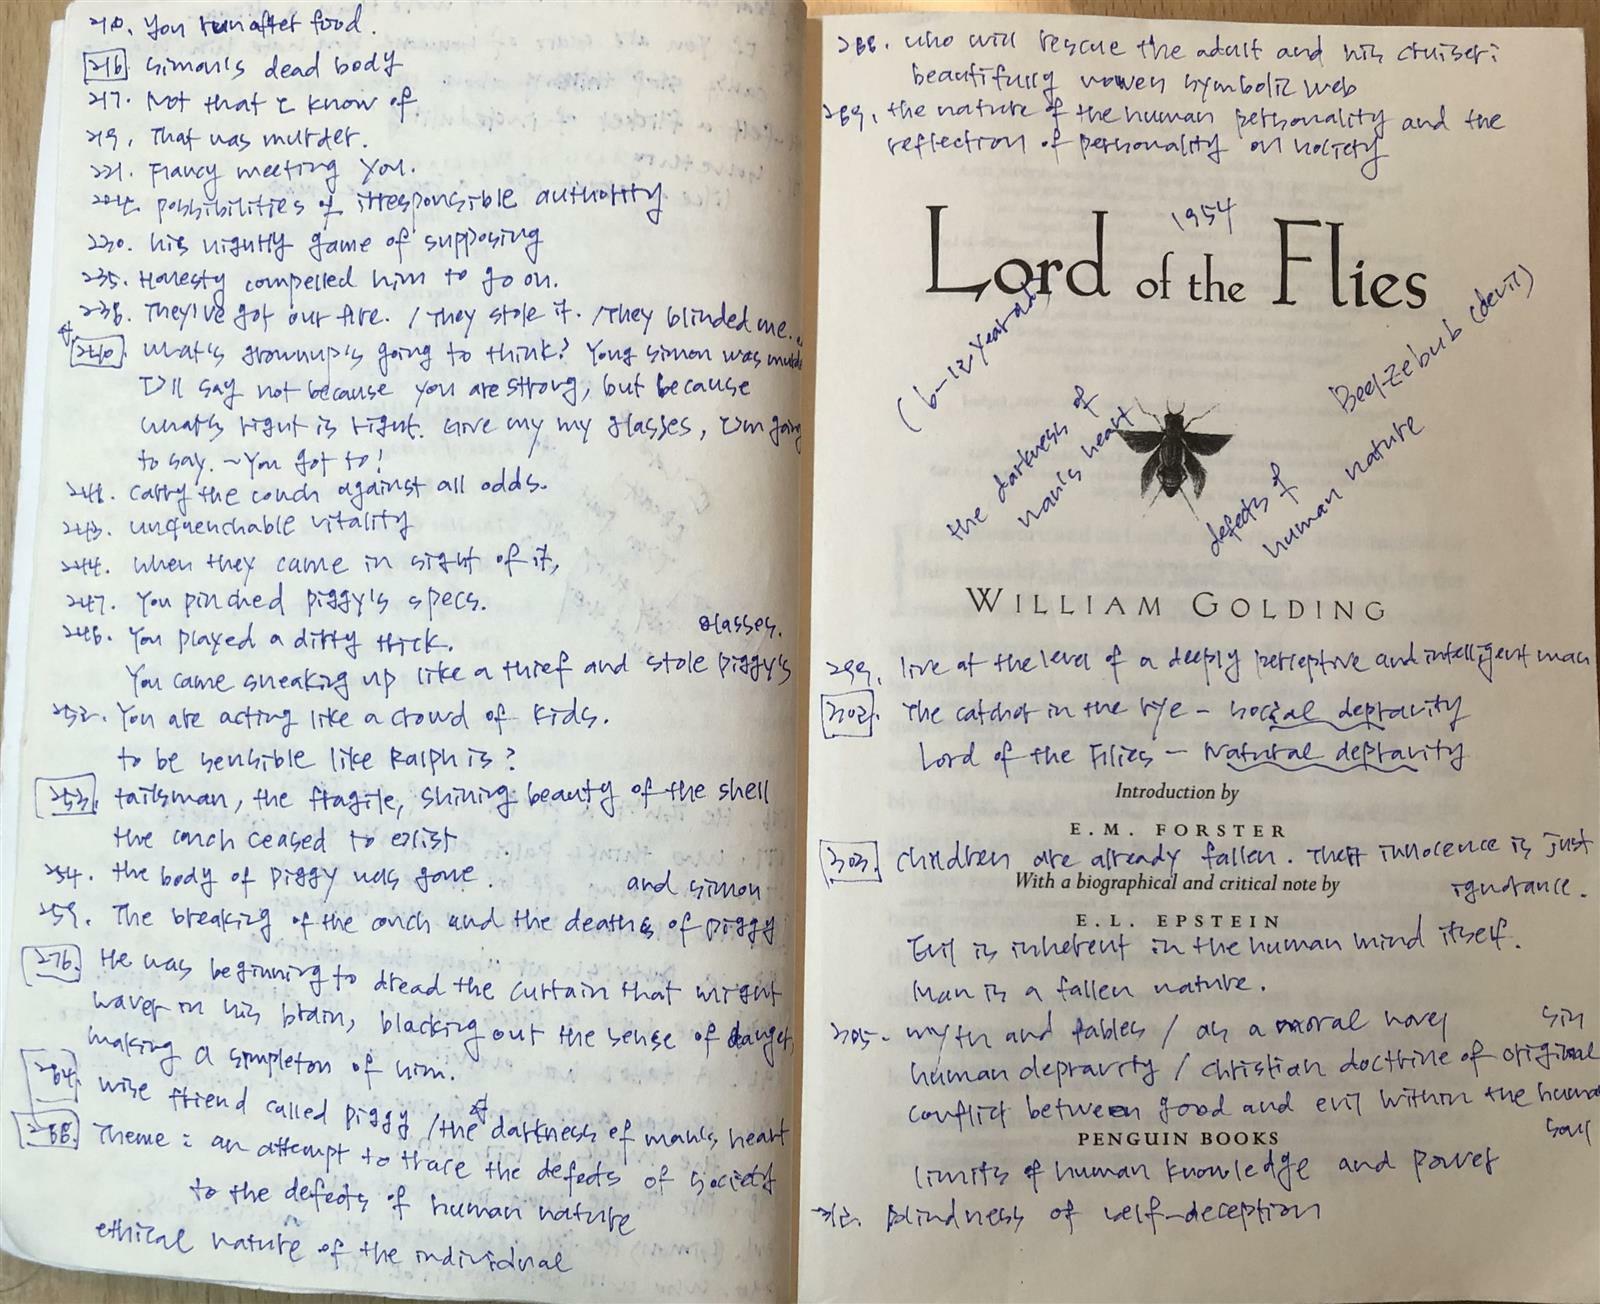 210. You run after food.
216 Simon's dead body
217. Not that I know of
219. That was murder.
221. Francy meeting you.
224. possibilities of irresponsible authority
230. his nightly game of supposing
235. Honesty compelled him to go on.
238. They've got our fire. / They stole it. / They blinded me.
240. What's grownup's going to think? Young Simon was murde
I'll say not because you are strong, but because
what's right is right. Give my my glasses, I'm going
to say. ~You got to!
241. carry the conch against all odds.
243. unquenchable vitality
244. when they came in sight of it,
247. You pinched piggy's specs.
248. You played a dirty trick.
glasses.
You came sneaking up like a thief and stole piggy's
252. You are acting like a crowd of kids.
to be sensible like Ralph is?
253. tailsman, the fragile, shining beauty of the shell
the conch ceased to exist
254. the body of piggy was gone.
and simon
259. The breaking of the conch and the deaths of piggy
276. He was beginning to dread the curtain that might
waver in his brain, blacking out the sense of danger,
making a simpleton of him.
284. wise friend called piggy / the darkness of man's heart
288. Theme: an attempt to trace the defects of society
to the defects of human nature
ethical nature of the individual
288. who will rescue the adult and his cruiser:
beautifully woven symbolic web
289. the nature of the human personality and the
reflection of personality on society
1954
Lord of the Flies
(6-12 year old)
the darkness of
man's heart
Beel-Zebub (devil)
defects of
human nature
WILLIAM GOLDING
299. live at the level of a deeply perceptive and intelligent man
302. The catcher in the rye - social depravity
Lord of the Flies - Natural depravity
Introduction by
E. M. FORSTER
303. children are already fallen. Their innocence is just
ignorance.
With a biographical and critical note by
E. L. EPSTEIN
Evil is inherent in the human mind itself.
Man is a fallen nature.
305. myth and fables / as a moral novel
sin
human depravity / christian doctrine of original
conflict between good and evil within the huma
soul
PENGUIN BOOKS
limits of human knowledge and power
312. blindness of self-deception